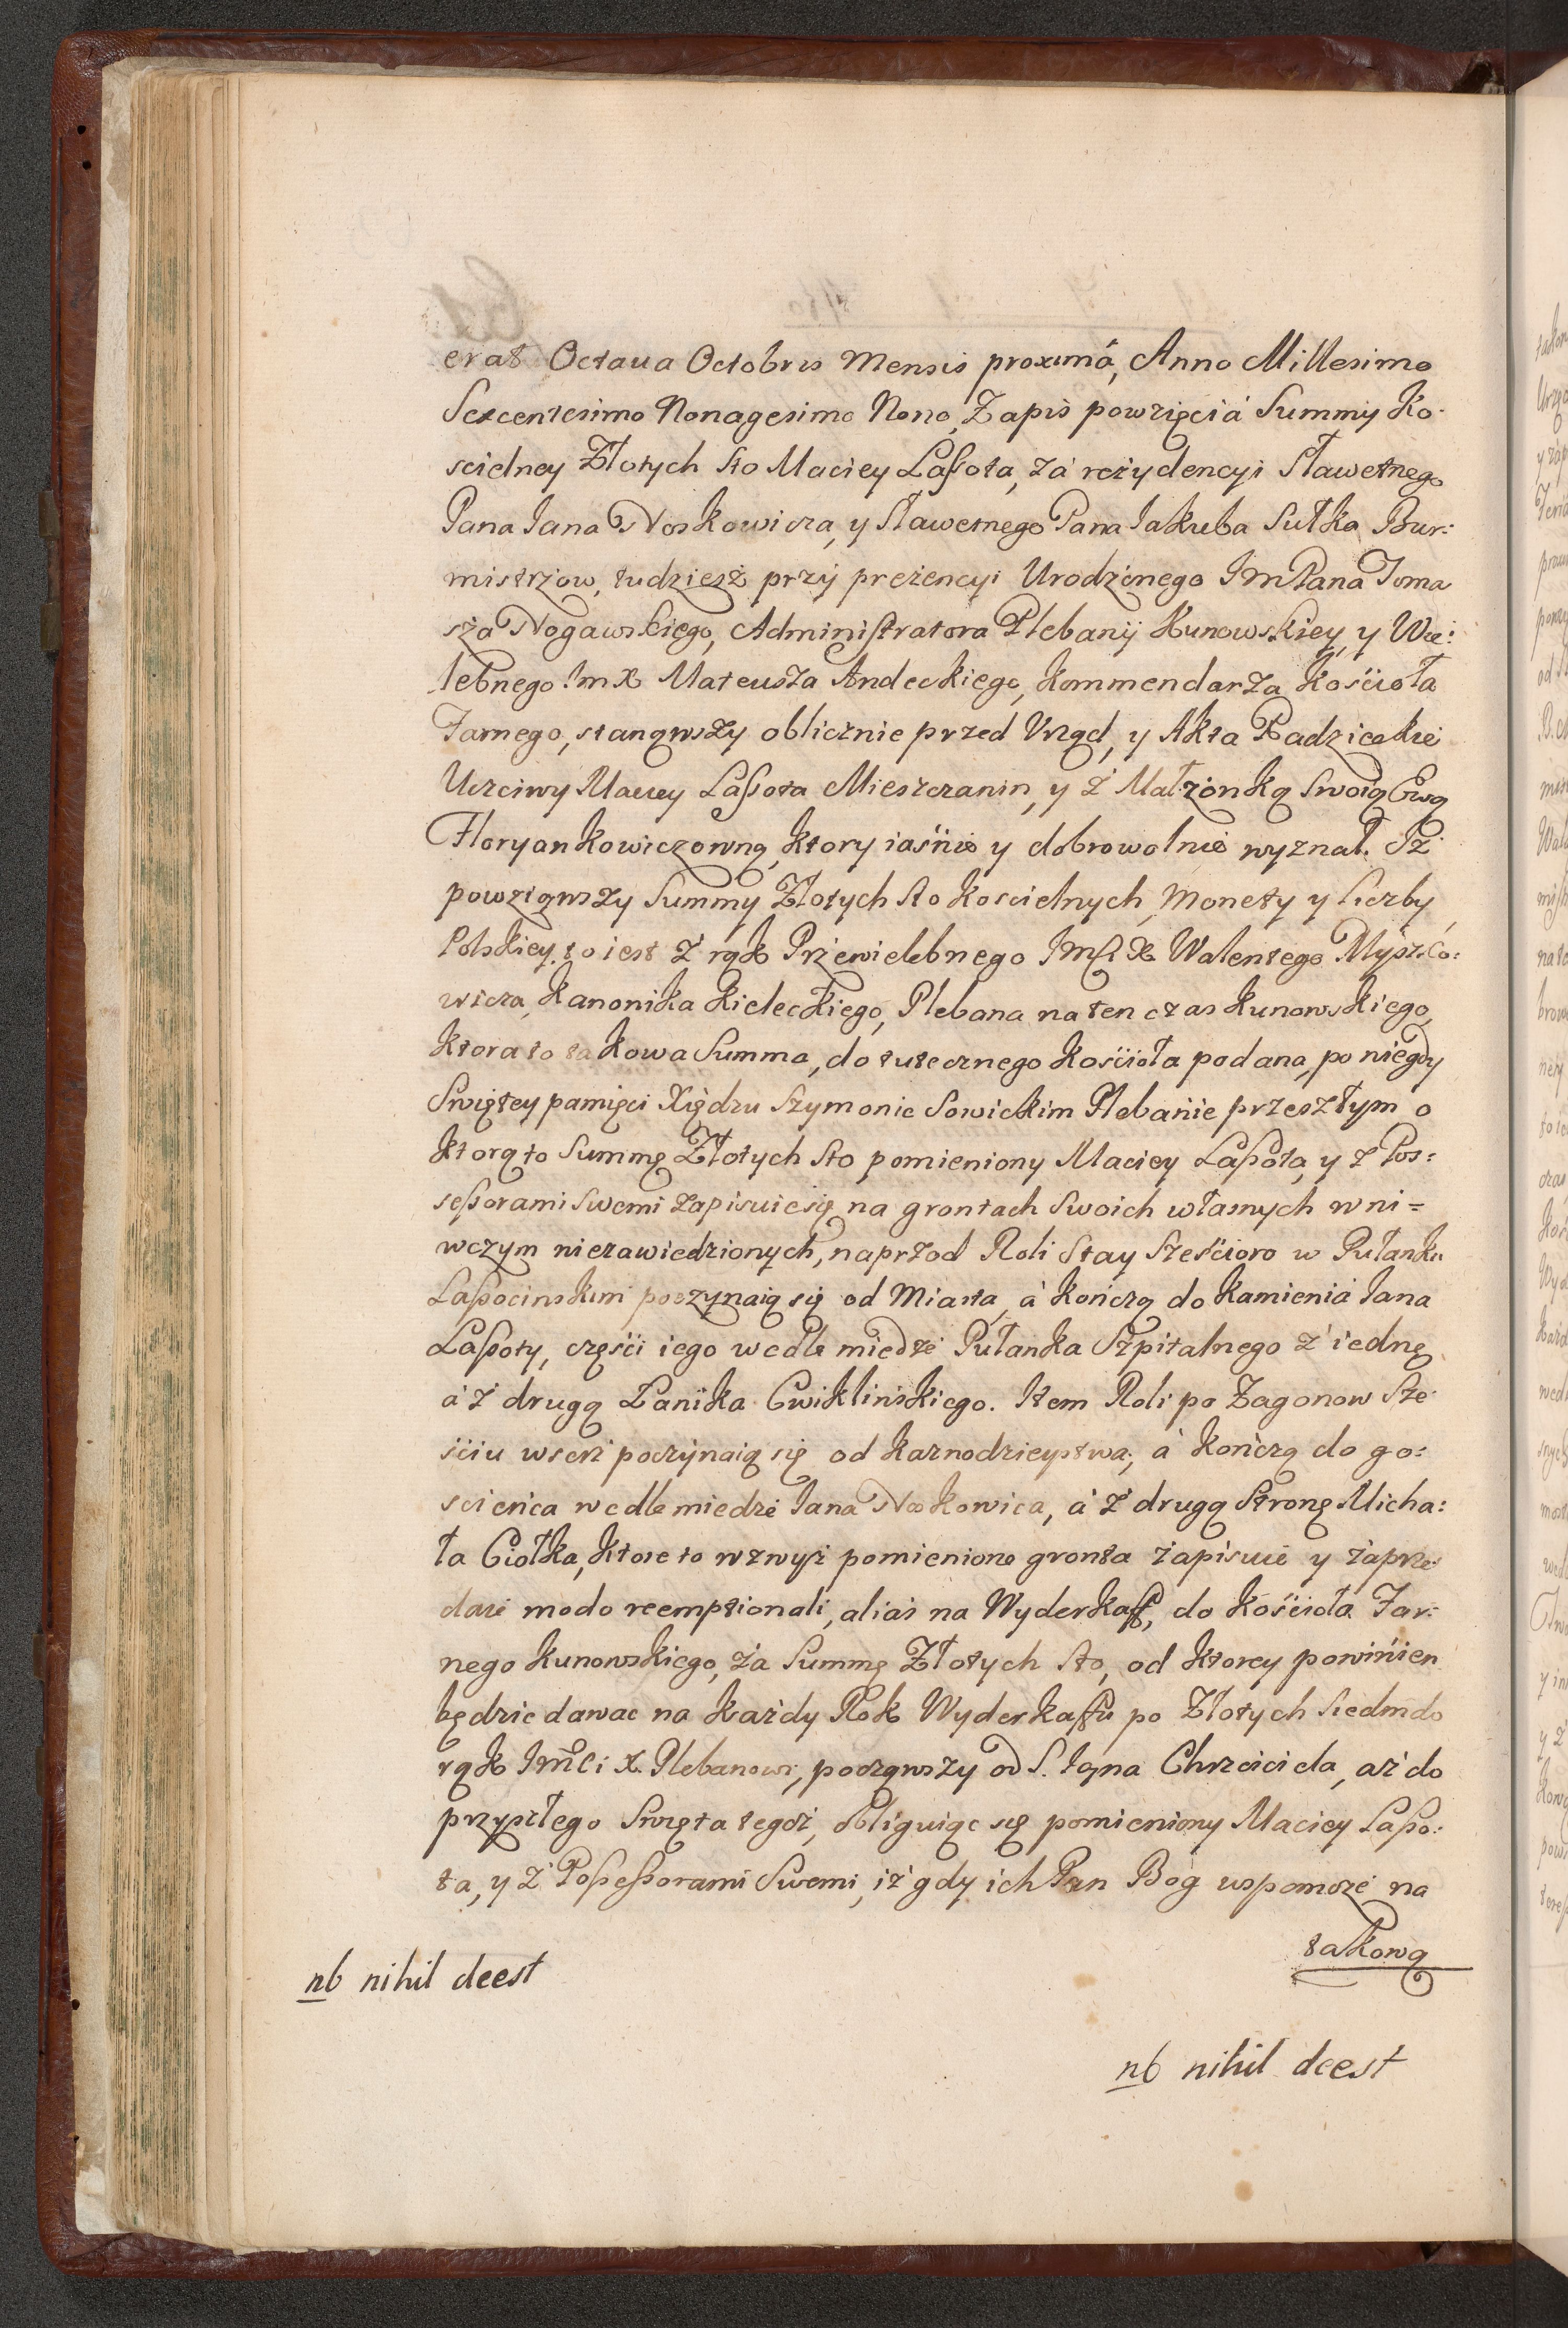 erat Octaua Octobris Mensis proximá, Anno Millesimo
Sexcentesimo Nonagesimo Nono, Zapis powzięcia Summy Ko-
scielney Złotych Sto Maciey Laßota, za reżydencyi Sławetnego
Pana Jana Noskowicza, y Sławetnego Pana Jakuba Sułka Bur:
mistrzow, tudziesz przy preżencyi Urodzonego JmPana Toma
sza Nogawskiego, Administratora Plebanij Kunowskiey, y Wie:
lebnego Jm X Mateusza Andeckiego, Kommendarza Kościoła
Farnego, stanąwszy oblicznie przed Vrząd, y Akta Radzieckie
Uczciwy Maciey Laßota Mieszczanin, y z Małżonką Swoią Ewą
Floryankowiczowną, ktory iaśnie y dobrowolnie wyznał. Iż
powziąwszy Summy Złotych Sto Koscielnych, Monety y Liczby
Polskiey, to iest z rąk Przewielebnego Jm X Walentego Myszko:
wicza, Kanonika Kieleckiego, Plebana na ten czas Kunowskiego,
ktora to takowa Summa, do tutecznego Kościoła podana, po niegdy
Swiętey pamięci Xiędzu Szymonie Sowickim Plebanie przeszłym o
ktorą to Summę Złotych Sto pomieniony Maciey Laßota, y z Pos:
seßorami Swemi zapisuie się na grontach Swoich własnych w ni=
wczym niezawiedzionych, naprzod Roli Stay Sześcioro w Pułanku
Laßocinskim poczynaią się od Miasta, á kończą do Kamienia Jana
Laßoty, części iego wedle miedze Pułanka Szpitalnego z iednę
á z drugą Łanika Cwiklińskiego. Item Roli po Zagonow Sze
ściu wserz poczynaią się od Kaznodzieystwa, á kończą do go:
scieńca wedle miedze Jana Noskowica, á z drugą Stronę Micha:
ła Ciołka, ktore to wzwysz pomienione gronta zapisuie y zaprze
daie modo reemptionali, alias na Wyderkaff, do Kościoła Far:
nego Kunowskiego, za Summę Złotych Sto, od ktorey powinien
będzie dawac na każdy Rok Wyderkaffu po Złotych Siedm do
rąk Jmci X. Plebanowi, począwszy od S. Jana Chrzciciela, aż do
przyszłego Swięta tegoż, obliguiąc się pomieniony Maciey Laßo:
ta, y z Poßeßorami Swemi, iż gdy ich Pan Bóg wspomoże na
takową
nb nihil deest
nb nihil deest